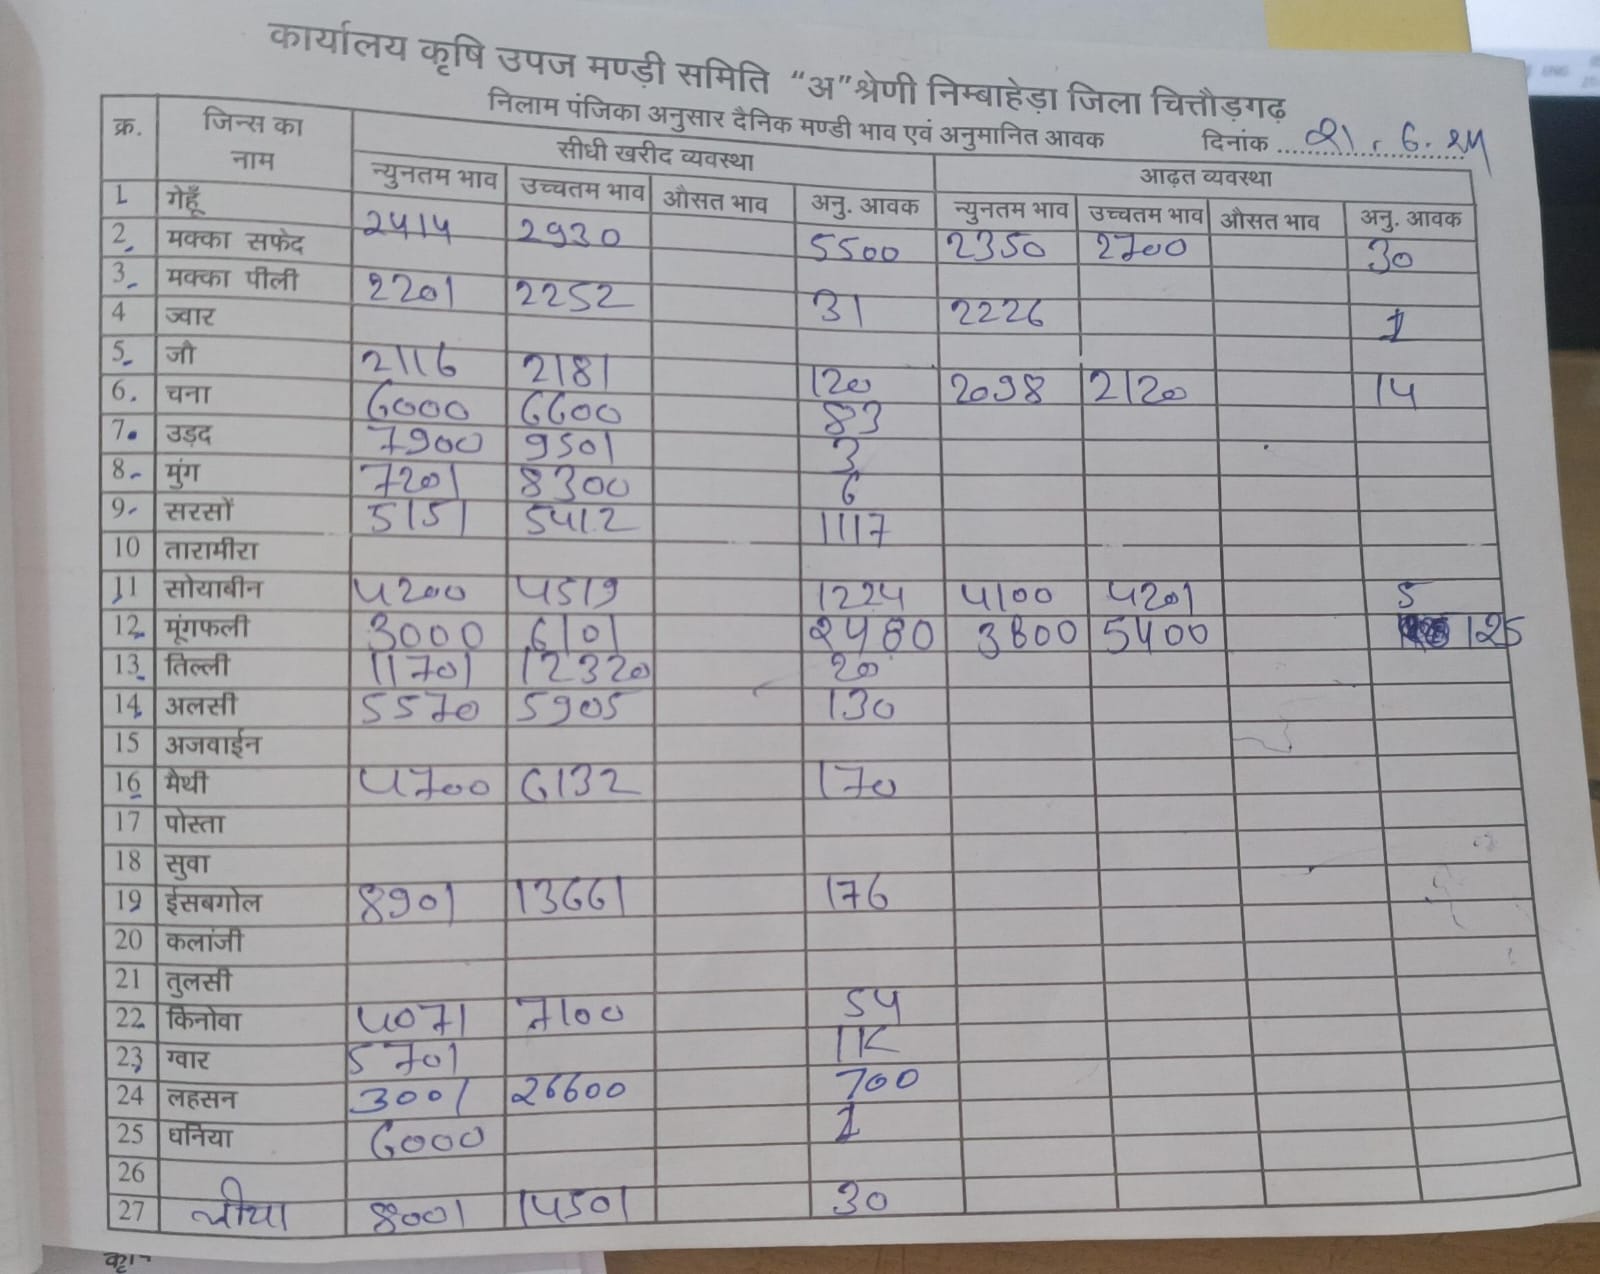 कार्यालय कृषि उपज मण्डी समिति "अ" श्रेणी निम्बाहेड़ा जिला चित्तौड़गढ़
निलाम पंजिका अनुसार दैनिक मण्डी भाव एवं अनुमानित आवक दिनांक 21.6.24
क्र. जिन्स का नाम सीधी खरीद व्यवस्था आढ़त व्यवस्था
न्युनतम भाव उच्चतम भाव औसत भाव अनु. आवक न्युनतम भाव उच्चतम भाव औसत भाव अनु. आवक
1 गेहूँ 2414 2930 5500 2350 2700 30
2 मक्का सफेद
3 मक्का पीली 2201 2252 31 2226 1
4 ज्वार
5 जौ 2116 2181 120 2098 2120 14
6 चना 6000 6600 83
7 उड़द 7900 9501 3
8 मुंग 7201 8300 6
9 सरसों 5151 5412 1117
10 तारामीरा
11 सोयाबीन 4200 4519 1224 4100 4201 5
12 मूंगफली 3000 6101 2480 3800 5400 125
13 तिल्ली 11701 12320 20
14 अलसी 5570 5905 130
15 अजवाईन
16 मैथी 4700 6132 170
17 पोस्ता
18 सुवा
19 ईसबगोल 8901 13661 176
20 कलांजी
21 तुलसी
22 किनोवा 4071 7100 54
23 ग्वार 5701
24 लहसन 3001 26600 700
25 धनिया 6000 1
26
27 चीया 8001 14501 30